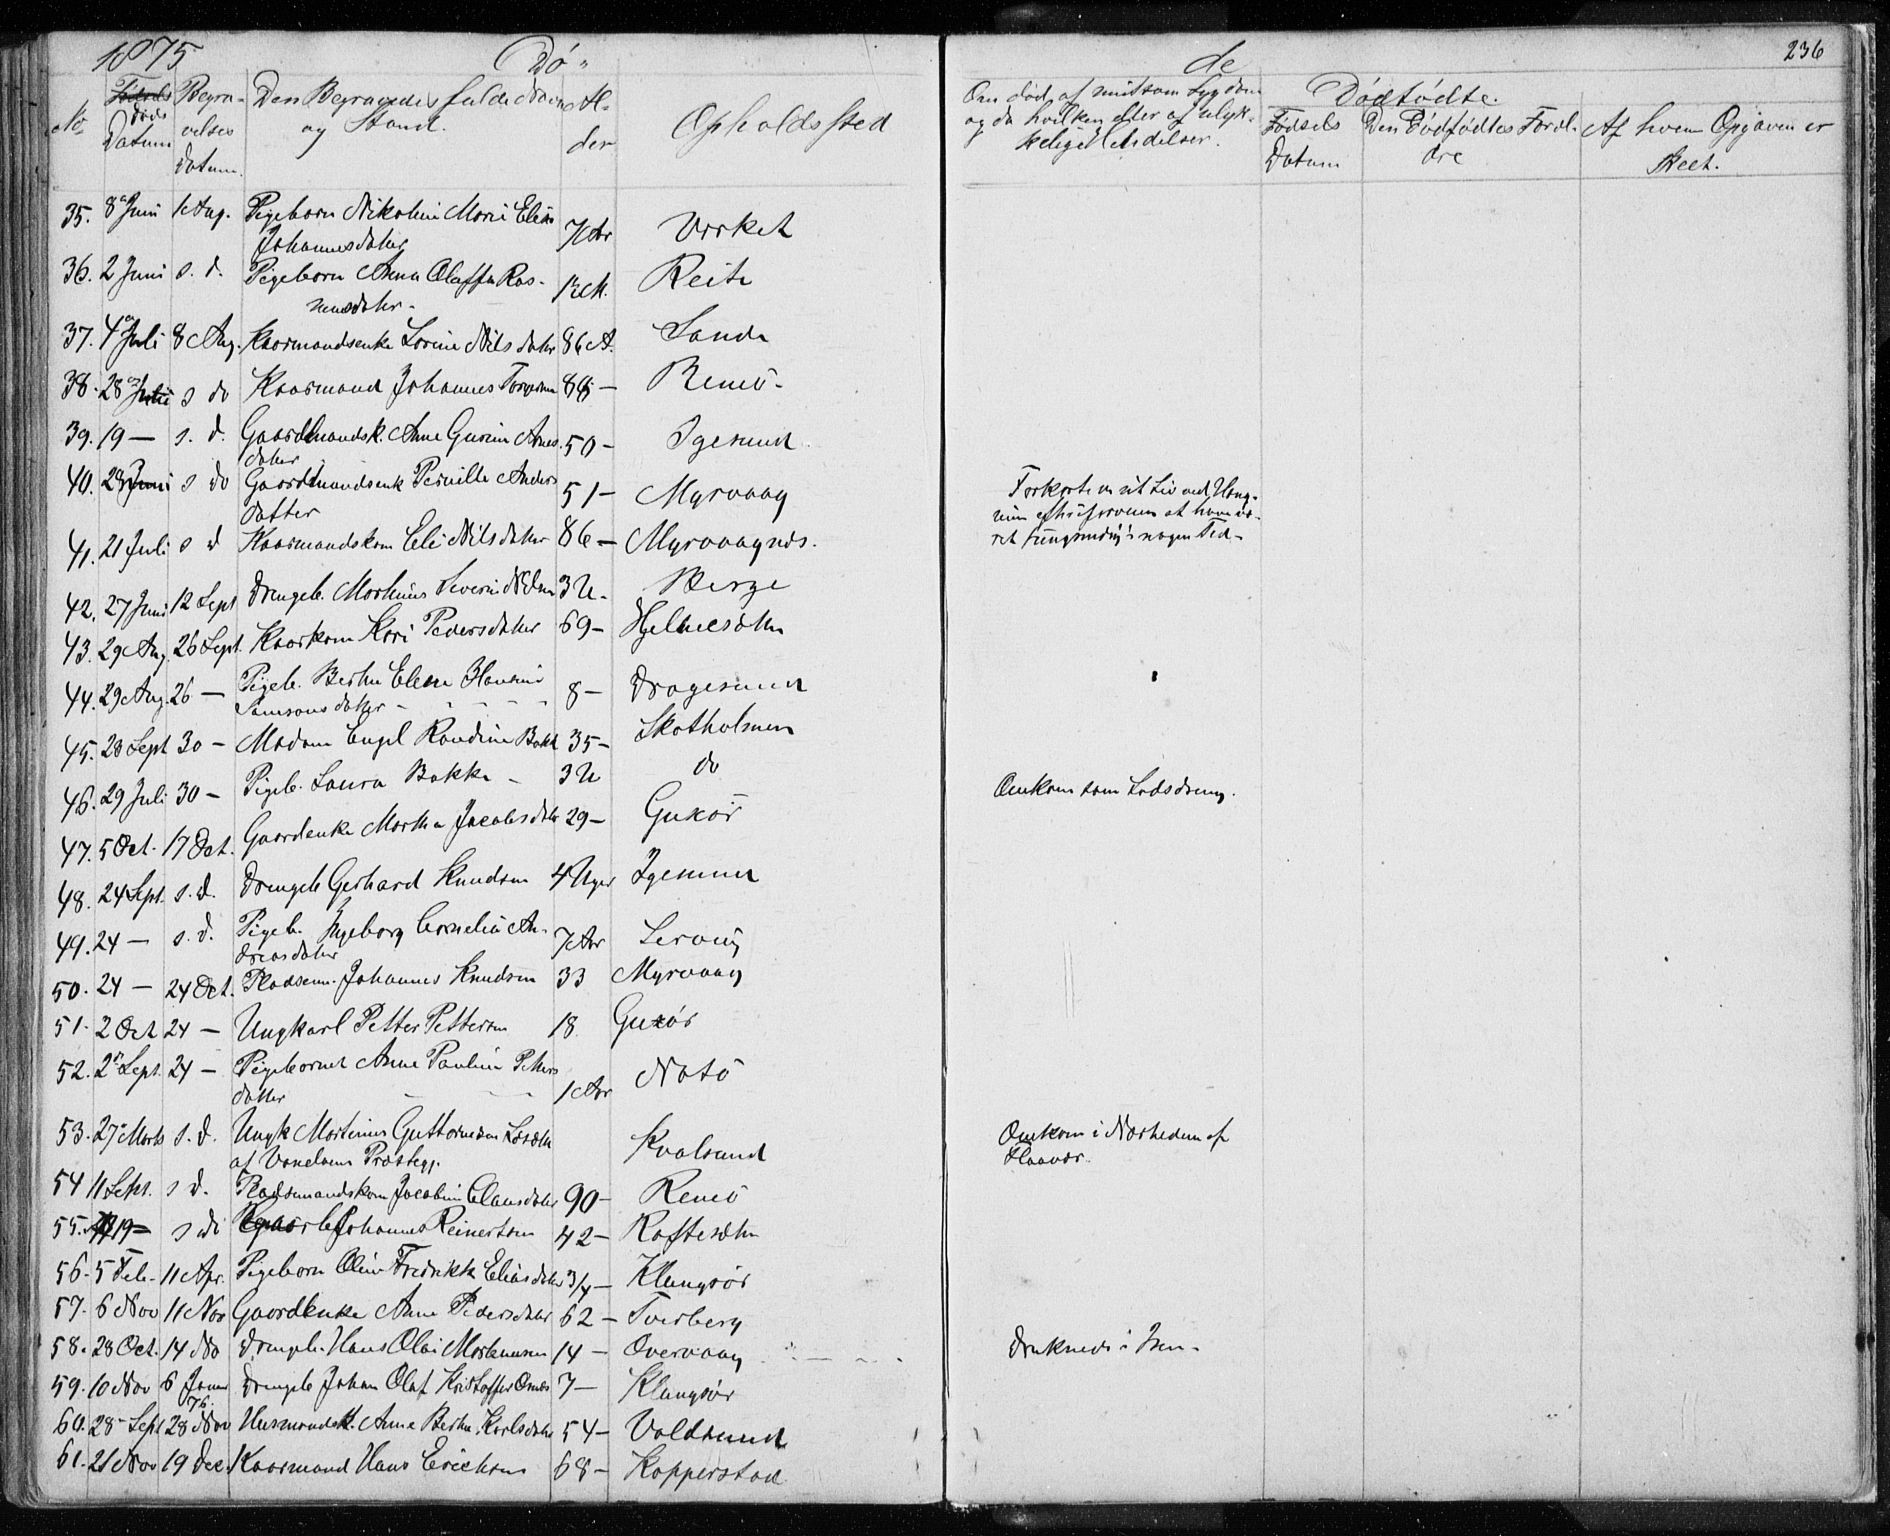 1875 Dö- de 236
No Døds Datum Begravelses Datum. Den Begravedes fulde Navn og Stand. Alder Opholdssted
Om død af smitsom Sygdom og da hvilken eller af ulykkelige Hendelser.
Dødfødte.
Fødsels Datum Den Dødfødtes Foreldre Af hvem Opgaven er skeet.
35. 8 Juni 1 Aug. Pigebarn Nikoline Marie Elise
Johannesdatter 7 Aar Virket
36. 2 Juni s. d. Pigebarn Anna Oluffa Ras-
musdatter Reite
37. 4 Juli 8 Aug. Kaarmandsenke Lovine Nilsdatter 86 A. Sande
38. 28 s do Kaarmand Johannes Remö
39. 19 — s. d. Gaardmandsk. Ane Gurine Arnes
datter 50 — Igesund
40. 28 s do Gaardmandsenk Pernille Anders
datter 51 — Myrvaag
Forkortede sit Liv ved Hæng-
ning efter at have væ-
ret tungsindig i nogen Tid.
41. 21 Juli s d Kaarmandskone Eli Nilsdatter 86 — Myrvaagnes.
42. 27 Juni 12 Sept Drengeb. Martinus Severin Nilsen 3 U. Berge
43. 29 Aug. 26 Sept. Kaarkone Kari Pedersdatter 69 — Hjelmesæter
44. 29 Aug. 26 — Pigeb. Berthe Elene Hansine
Samsonsdatter 8 — Dragesund
45. 28 Sept 30 — Madam Engel Randine Bakke 35 — Skotholmen
46. 29 Juli 30 — Pigeb. Laura Bakke — 3 U do
Omkom som Lodsdreng.
47. 5 Oct. 17 Oct. Gaardenke Marthe Jacobsdatter 29 — Gurskör
48. 24 Sept. s. d. Drengeb Gerhard Knudsen 4 Uger Igesund
49. 24 — s. d. Pigeb. Ingeborg Cornelia An-
dreasdatter 7 Aar Lervaag
50. 24 — 24 Oct. Pladsem. Johannes Knudsen 33 Myrvaag
51. 2 Oct 24 — Ungkarl Petter Pettersen 18
52. 2 Sept. 24 — Pigebarnet Anne Pauline Petters
datter 1 Aar Notö
53. 27 Marts s. d. Ungk Martinus Guttormsen
af Vanelvens Præstegj. Kvalsund
Omkom i Nærheden af
54 11 Sept. s d. Pladsmandskone Jacobine Clausdatter 90 — Remö
55. 19 — s d Johannes Reinertsen 42 — Raftesæter
56. 5 Feb. 11 Apr. Pigebarn Oline Fredrikke Eliasdatter 3/4 — Klungsör
57. 6 Nov 11 Nov Gaardenke Anne Pedersdatter 62 — Tverberg
58. 28 Oct. 14 No Drengeb. Hans Olai Mortensen 14 — Overvaag
Druknede i Søen.
59. 10 Nov 6 Janu 76. Drengeb Johan Olaf Kristoffer 7 — Klungsör
60. 28 Sept 28 Nov Husmandsk. Anne Berthe Karlsdatter 54 — Voldsund
61. 21 Nov 19 Dec. Kaarmand Hans Ericksen 68 — Kopperstad